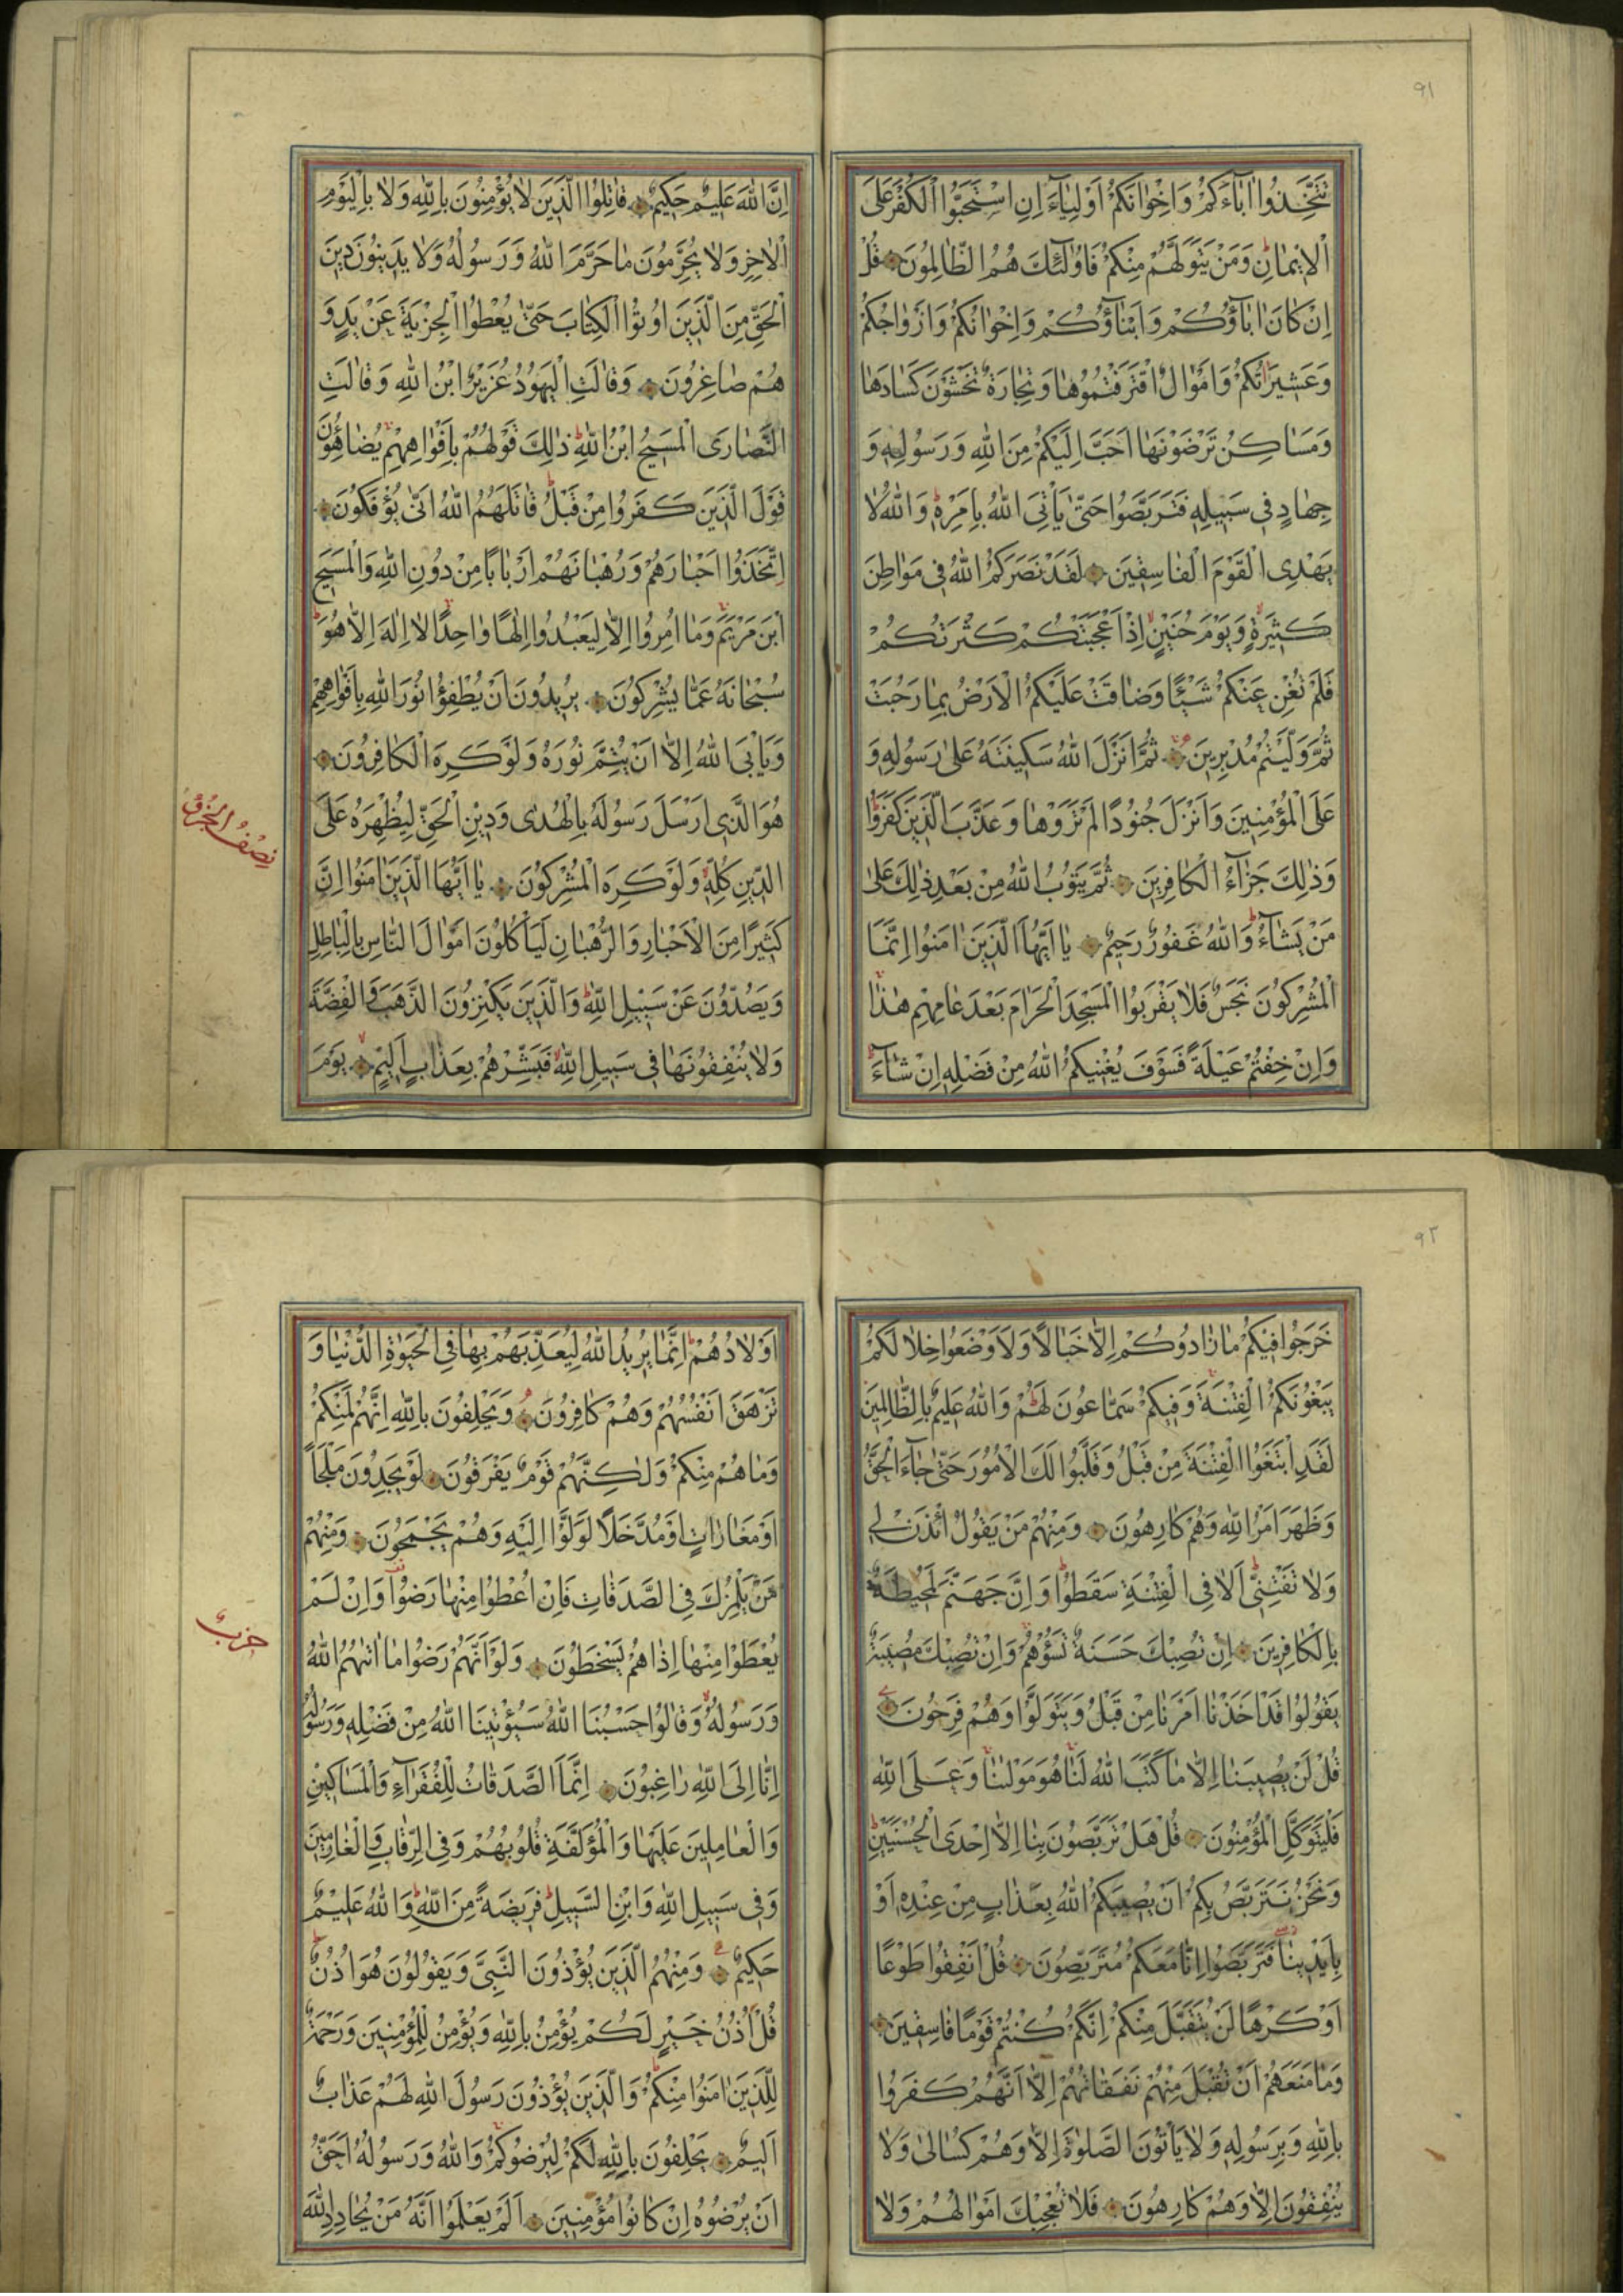 ٩١
تَتَّخِذُوا اٰبَآءَكُمْ وَاِخْوَانَكُمْ اَوْلِيَآءَ اِنِ اسْتَحَبُّوا الْكُفْرَ عَلَى
الْاِيمَانِ وَمَنْ يَتَوَلَّهُمْ مِنْكُمْ فَاُولٰٓئِكَ هُمُ الظَّالِمُونَ قُلْ
اِنْ كَانَ اٰبَآؤُكُمْ وَاَبْنَآؤُكُمْ وَاِخْوَانُكُمْ وَاَزْوَاجُكُمْ
وَعَشِيرَاتُكُمْ وَاَمْوَالٌ اقْتَرَفْتُمُوهَا وَتِجَارَةٌ تَخْشَوْنَ كَسَادَهَا
وَمَسَاكِنُ تَرْضَوْنَهَا اَحَبَّ اِلَيْكُمْ مِنَ اللّٰهِ وَرَسُولِهِ وَ
جِهَادٍ فِى سَبِيلِهِ فَتَرَبَّصُوا حَتّٰى يَاْتِىَ اللّٰهُ بِاَمْرِهِ وَاللّٰهُ لَا
يَهْدِى الْقَوْمَ الْفَاسِقِينَ لَقَدْ نَصَرَكُمُ اللّٰهُ فِى مَوَاطِنَ
كَثِيرَةٍ وَيَوْمَ حُنَيْنٍ اِذْ اَعْجَبَتْكُمْ كَثْرَتُكُمْ
فَلَمْ تُغْنِ عَنْكُمْ شَيْئًا وَضَاقَتْ عَلَيْكُمُ الْاَرْضُ بِمَا رَحُبَتْ
ثُمَّ وَلَّيْتُمْ مُدْبِرِينَ ثُمَّ اَنْزَلَ اللّٰهُ سَكِينَتَهُ عَلٰى رَسُولِهِ وَ
عَلَى الْمُؤْمِنِينَ وَاَنْزَلَ جُنُودًا لَمْ تَرَوْهَا وَعَذَّبَ الَّذِينَ كَفَرُوا
وَذٰلِكَ جَزَآءُ الْكَافِرِينَ ثُمَّ يَتُوبُ اللّٰهُ مِنْ بَعْدِ ذٰلِكَ عَلٰى
مَنْ يَشَآءُ وَاللّٰهُ غَفُورٌ رَحِيمٌ يَا اَيُّهَا الَّذِينَ اٰمَنُوا اِنَّمَا
الْمُشْرِكُونَ نَجَسٌ فَلَا يَقْرَبُوا الْمَسْجِدَ الْحَرَامَ بَعْدَ عَامِهِمْ هٰذَا
وَاِنْ خِفْتُمْ عَيْلَةً فَسَوْفَ يُغْنِيكُمُ اللّٰهُ مِنْ فَضْلِهِ اِنْ شَآءَ
اِنَّ اللّٰهَ عَلِيمٌ حَكِيمٌ قَاتِلُوا الَّذِينَ لَا يُؤْمِنُونَ بِاللّٰهِ وَلَا بِالْيَوْمِ
الْاٰخِرِ وَلَا يُحَرِّمُونَ مَا حَرَّمَ اللّٰهُ وَرَسُولُهُ وَلَا يَدِينُونَ دِينَ
الْحَقِّ مِنَ الَّذِينَ اُوتُوا الْكِتَابَ حَتّٰى يُعْطُوا الْجِزْيَةَ عَنْ يَدٍ وَ
هُمْ صَاغِرُونَ وَقَالَتِ الْيَهُودُ عُزَيْرٌ ابْنُ اللّٰهِ وَقَالَتِ
النَّصَارَى الْمَسِيحُ ابْنُ اللّٰهِ ذٰلِكَ قَوْلُهُمْ بِاَفْوَاهِهِمْ يُضَاهِؤُنَ
قَوْلَ الَّذِينَ كَفَرُوا مِنْ قَبْلُ قَاتَلَهُمُ اللّٰهُ اَنّٰى يُؤْفَكُونَ
اِتَّخَذُوا اَحْبَارَهُمْ وَرُهْبَانَهُمْ اَرْبَابًا مِنْ دُونِ اللّٰهِ وَالْمَسِيحَ
ابْنَ مَرْيَمَ وَمَا اُمِرُوا اِلَّا لِيَعْبُدُوا اِلٰهًا وَاحِدًا لَا اِلٰهَ اِلَّا هُوَ
سُبْحَانَهُ عَمَّا يُشْرِكُونَ يُرِيدُونَ اَنْ يُطْفِؤُا نُورَ اللّٰهِ بِاَفْوَاهِهِمْ
وَيَاْبَى اللّٰهُ اِلَّا اَنْ يُتِمَّ نُورَهُ وَلَوْ كَرِهَ الْكَافِرُونَ
هُوَ الَّذِى اَرْسَلَ رَسُولَهُ بِالْهُدٰى وَدِينِ الْحَقِّ لِيُظْهِرَهُ عَلَى
الدِّينِ كُلِّهِ وَلَوْ كَرِهَ الْمُشْرِكُونَ يَا اَيُّهَا الَّذِينَ اٰمَنُوا اِنَّ
كَثِيرًا مِنَ الْاَحْبَارِ وَالرُّهْبَانِ لَيَاْكُلُونَ اَمْوَالَ النَّاسِ بِالْبَاطِلِ
وَيَصُدُّونَ عَنْ سَبِيلِ اللّٰهِ وَالَّذِينَ يَكْنِزُونَ الذَّهَبَ وَالْفِضَّةَ
وَلَا يُنْفِقُونَهَا فِى سَبِيلِ اللّٰهِ فَبَشِّرْهُمْ بِعَذَابٍ اَلِيمٍ يَوْمَ
نِصْفُ الْجُزْءِ
٩٢
خَرَجُوا فِيكُمْ مَا زَادُوكُمْ اِلَّا خَبَالًا وَلَاَوْضَعُوا خِلَالَكُمْ
يَبْغُونَكُمُ الْفِتْنَةَ وَفِيكُمْ سَمَّاعُونَ لَهُمْ وَاللّٰهُ عَلِيمٌ بِالظَّالِمِينَ
لَقَدِ ابْتَغَوُا الْفِتْنَةَ مِنْ قَبْلُ وَقَلَّبُوا لَكَ الْاُمُورَ حَتّٰى جَآءَ الْحَقُّ
وَظَهَرَ اَمْرُ اللّٰهِ وَهُمْ كَارِهُونَ وَمِنْهُمْ مَنْ يَقُولُ ائْذَنْ لِى
وَلَا تَفْتِنِّى اَلَا فِى الْفِتْنَةِ سَقَطُوا وَاِنَّ جَهَنَّمَ لَمُحِيطَةٌ
بِالْكَافِرِينَ اِنْ تُصِبْكَ حَسَنَةٌ تَسُؤْهُمْ وَاِنْ تُصِبْكَ مُصِيبَةٌ
يَقُولُوا قَدْ اَخَذْنَا اَمْرَنَا مِنْ قَبْلُ وَيَتَوَلَّوْا وَهُمْ فَرِحُونَ
قُلْ لَنْ يُصِيبَنَا اِلَّا مَا كَتَبَ اللّٰهُ لَنَا هُوَ مَوْلٰنَا وَعَلَى اللّٰهِ
فَلْيَتَوَكَّلِ الْمُؤْمِنُونَ قُلْ هَلْ تَرَبَّصُونَ بِنَا اِلَّا اِحْدَى الْحُسْنَيَيْنِ
وَنَحْنُ نَتَرَبَّصُ بِكُمْ اَنْ يُصِيبَكُمُ اللّٰهُ بِعَذَابٍ مِنْ عِنْدِهِ اَوْ
بِاَيْدِينَا فَتَرَبَّصُوا اِنَّا مَعَكُمْ مُتَرَبِّصُونَ قُلْ اَنْفِقُوا طَوْعًا
اَوْ كَرْهًا لَنْ يُتَقَبَّلَ مِنْكُمْ اِنَّكُمْ كُنْتُمْ قَوْمًا فَاسِقِينَ
وَمَا مَنَعَهُمْ اَنْ تُقْبَلَ مِنْهُمْ نَفَقَاتُهُمْ اِلَّا اَنَّهُمْ كَفَرُوا
بِاللّٰهِ وَبِرَسُولِهِ وَلَا يَاْتُونَ الصَّلٰوةَ اِلَّا وَهُمْ كُسَالٰى وَلَا
يُنْفِقُونَ اِلَّا وَهُمْ كَارِهُونَ فَلَا تُعْجِبْكَ اَمْوَالُهُمْ وَلَا
اَوْلَادُهُمْ اِنَّمَا يُرِيدُ اللّٰهُ لِيُعَذِّبَهُمْ بِهَا فِى الْحَيٰوةِ الدُّنْيَا وَ
تَزْهَقَ اَنْفُسُهُمْ وَهُمْ كَافِرُونَ وَيَحْلِفُونَ بِاللّٰهِ اِنَّهُمْ لَمِنْكُمْ
وَمَا هُمْ مِنْكُمْ وَلٰكِنَّهُمْ قَوْمٌ يَفْرَقُونَ لَوْ يَجِدُونَ مَلْجَاً
اَوْ مَغَارَاتٍ اَوْ مُدَّخَلًا لَوَلَّوْا اِلَيْهِ وَهُمْ يَجْمَحُونَ وَمِنْهُمْ
مَنْ يَلْمِزُكَ فِى الصَّدَقَاتِ فَاِنْ اُعْطُوا مِنْهَا رَضُوا وَاِنْ لَمْ
يُعْطَوْا مِنْهَا اِذَا هُمْ يَسْخَطُونَ وَلَوْ اَنَّهُمْ رَضُوا مَا اٰتٰيهُمُ اللّٰهُ
وَرَسُولُهُ وَقَالُوا حَسْبُنَا اللّٰهُ سَيُؤْتِينَا اللّٰهُ مِنْ فَضْلِهِ وَرَسُولُهُ
اِنَّا اِلَى اللّٰهِ رَاغِبُونَ اِنَّمَا الصَّدَقَاتُ لِلْفُقَرَآءِ وَالْمَسَاكِينِ
وَالْعَامِلِينَ عَلَيْهَا وَالْمُؤَلَّفَةِ قُلُوبُهُمْ وَفِى الرِّقَابِ وَالْغَارِمِينَ
وَفِى سَبِيلِ اللّٰهِ وَابْنِ السَّبِيلِ فَرِيضَةً مِنَ اللّٰهِ وَاللّٰهُ عَلِيمٌ
حَكِيمٌ وَمِنْهُمُ الَّذِينَ يُؤْذُونَ النَّبِىَّ وَيَقُولُونَ هُوَ اُذُنٌ
قُلْ اُذُنُ خَيْرٍ لَكُمْ يُؤْمِنُ بِاللّٰهِ وَيُؤْمِنُ لِلْمُؤْمِنِينَ وَرَحْمَةٌ
لِلَّذِينَ اٰمَنُوا مِنْكُمْ وَالَّذِينَ يُؤْذُونَ رَسُولَ اللّٰهِ لَهُمْ عَذَابٌ
اَلِيمٌ يَحْلِفُونَ بِاللّٰهِ لَكُمْ لِيُرْضُوكُمْ وَاللّٰهُ وَرَسُولُهُ اَحَقُّ
اَنْ يُرْضُوهُ اِنْ كَانُوا مُؤْمِنِينَ اَلَمْ يَعْلَمُوا اَنَّهُ مَنْ يُحَادِدِ اللّٰهَ
حزب